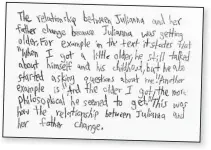 The relationship between Julianna and her
father change because Julianna was getting
older. For example in the text it states that
"when I got a little older, he still talked
about himself and his childhood, but he also
started asking questions about me." Another
example is "And the older I got, the more
philosophical he seemed to get." This was
how the relationship between Julianna and
her father change.